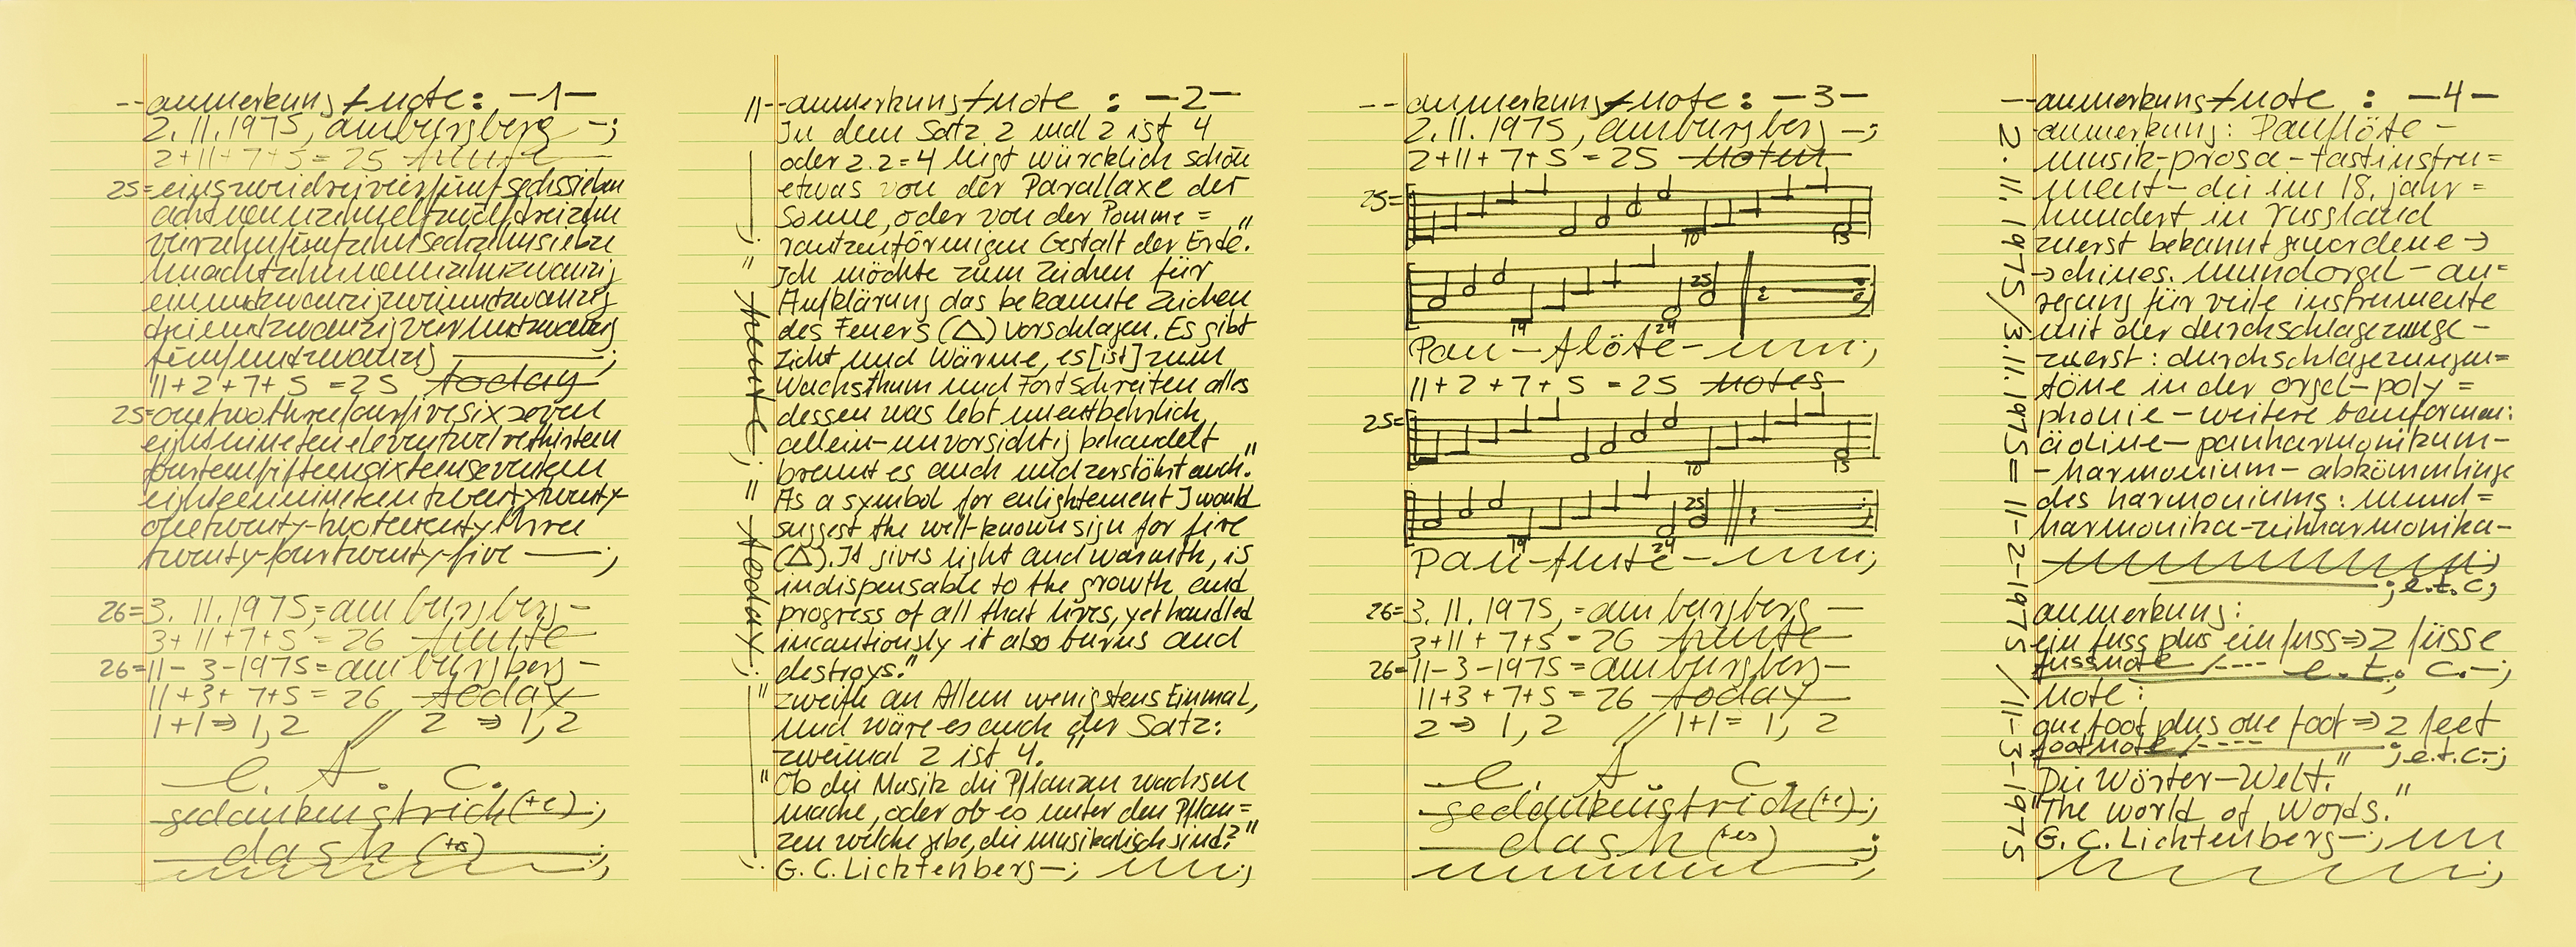 --anmerkung+note: -1-
2.11.1975, am burgberg -;
2+11+7+5=25 heute
25=einszweidreivierfünfsechssieben
achtneunzehnelfzwölfdreizehn
vierzehnfünfzehnsechzehnsiebze
hnachtzehnneunzehnzwanzig
einundzwanzigzweiundzwanzig
dreiundzwanzigvierundzwanzig
fünfundzwanzig ———;
11+2+7+5 =25 today
25=onetwothreefourfivesixseven
eightnineteneleventwelvethirteen
fourteenfifteensixteenseventeen
eighteennineteentwentytwenty-
onetwenty-twotwentythree
twenty-fourtwenty-five ——;
26=3. 11.1975;=am burgberg-
3+11+7+5 = 26 heute
26=11-3-1975=am burgberg-
11+3+7+5=26 today
1+1⇒1,2 // 2 ⇒1,2
e. t. c.
gedankenstrich(+e);
dash (+es)
;
"--anmerkung+note : -2-
In dem Satz 2 mal 2 ist 4
oder 2.2=4 liegt würcklich schon
etwas von der Parallaxe der
Sonne, oder von der Pomme=
rantzenförmigen Gestalt der Erde."
" Ich möchte zum Zeichen für
Aufklärung das bekannte Zeichen
des Feuers (△) vorschlagen. Es gibt
Licht und Wärme, es [ist] zum
Wachsthum und Fortschreiten alles
dessen was lebt unentbehrlich,
allein-unvorsichtig behandelt
brennt es auch und zerstöhrt auch."
" As a symbol for enlightement I would
suggest the well-known sign for fire
(△). It gives light and warmth, is
indispensable to the growth and
progress of all that lives, yet handled
incautiously it also burns and
destroys."
" zweifle an Allem wenigstens Einmal,
und wäre es auch der Satz:
zweimal 2 ist 4."
"Ob die Musik die Pflanzen wachsen
mache, oder ob es unter den Pflan=
zen welche gebe, die musikalisch sind?"
G. C. Lichtenberg-;
heute;
today;
--anmerkung+note: -3-
2.11.1975, am burgberg -;
2+11+7+5 =25 noten
25=
10 15
19 24 25
Pan-flöte-
11+2+7+5 =25 notes
25=
10 15
19 24 25
Pan-flute-
26=3. 11.1975,=am burgberg -
3+11+7+5=26 heute
26=11-3-1975=am burgberg-
11+3+7+5=26 today
2⇒1,2 // 1+1=1, 2
e. t. c.
gedankenstrich(+e);
dash (+es)
;
--anmerkung+note : -4-
anmerkung: Panflöte-
musik-prosa-tastinstru=
ment-die im 18. jahr=
hundert in russland
zuerst bekannt gewordene→
→chines. mundorgel-an=
regung für viele instrumente
mit der durchschlagezunge-
zuerst: durchschlagezungen=
töne in der orgel-poly=
phonie-weitere bauformen:
äoline-panharmonikum-
-harmonium-abkömmlinge
des harmoniums: mund=
harmonika-ziehharmonika-
;e.t.c;
anmerkung:
ein fuss plus ein fuss⇒2 füsse
fussnote/---- e. t. c.-;
note:
one foot plus one foot⇒2 feet
footnote/---- ;e.t.c-;
"Die Wörter-Welt."
"The world of words."
G. C. Lichtenberg-;
2.11.1975/3.11.1975=11-2-1975/11-3-1975